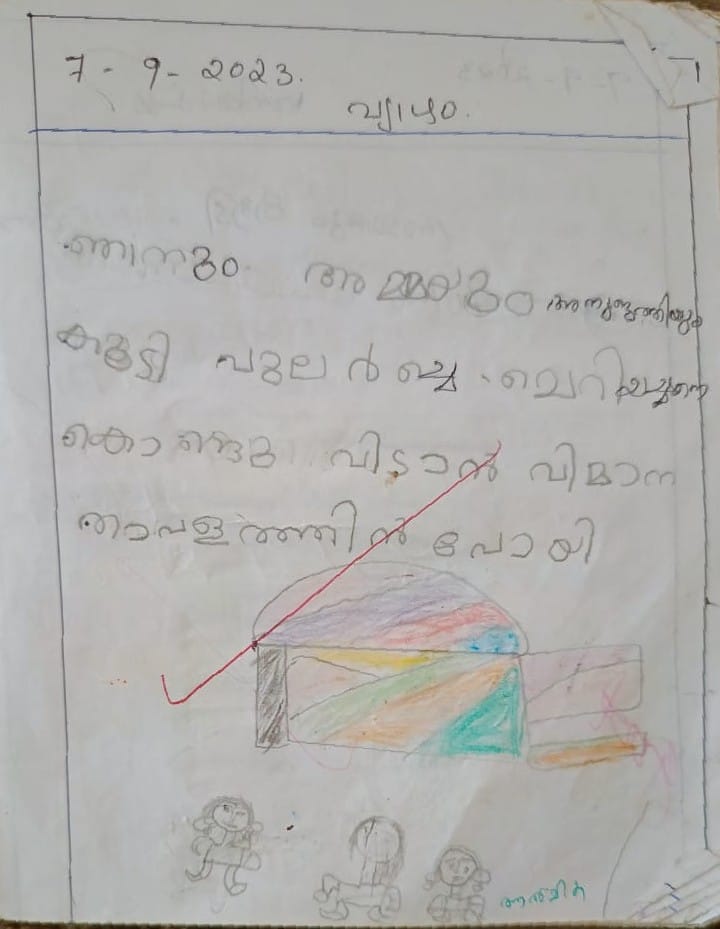 7 - 9 - 2023.
വ്യാഴം.
ഞാനും അമ്മയും അനുജത്തിയും
കൂടി പുലർച്ചെ ചെറിയച്ഛനെ
കൊണ്ടു വിടാൻ വിമാന
താവളത്തിൽ പോയി